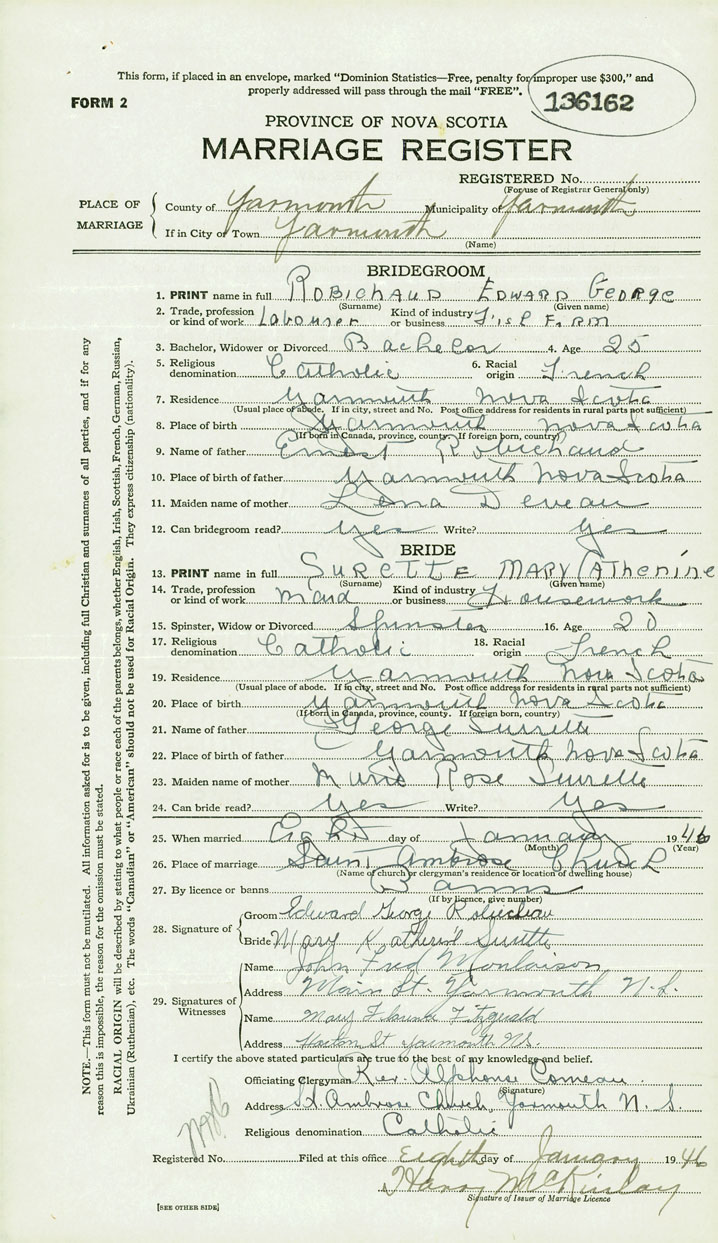 This form, if placed in an envelope, marked "Dominion Statistics—Free, penalty for improper use $300," and
properly addressed will pass through the mail "FREE".
136162
FORM 2
PROVINCE OF NOVA SCOTIA
MARRIAGE REGISTER
REGISTERED No.
(For use of Registrar General only)
PLACE OF MARRIAGE
County of Yarmouth Municipality of Yarmouth
If in City or Town Yarmouth
(Name)
BRIDEGROOM
1. PRINT name in full ROBICHAUD EDWARD GEORGE
(Surname) (Given name)
2. Trade, profession or kind of work Labourer Kind of industry or business Fish Firm
3. Bachelor, Widower or Divorced Bachelor 4. Age 25
5. Religious denomination Catholic 6. Racial origin French
7. Residence Yarmouth Nova Scotia
(Usual place of abode. If in city, street and No. Post office address for residents in rural parts not sufficient)
8. Place of birth Yarmouth Nova Scotia
(If born in Canada, province, county. If foreign born, country)
9. Name of father Ernest Robichaud
10. Place of birth of father Yarmouth Nova Scotia
11. Maiden name of mother Lena Deveau
12. Can bridegroom read? Yes Write? Yes
BRIDE
13. PRINT name in full SURETTE MARY CATHERINE
(Surname) (Given name)
14. Trade, profession or kind of work Maid Kind of industry or business Housework
15. Spinster, Widow or Divorced Spinster 16. Age 20
17. Religious denomination Catholic 18. Racial origin French
19. Residence Yarmouth Nova Scotia
(Usual place of abode. If in city, street and No. Post office address for residents in rural parts not sufficient)
20. Place of birth Yarmouth Nova Scotia
(If born in Canada, province, county. If foreign born, country)
21. Name of father George Surette
22. Place of birth of father Yarmouth Nova Scotia
23. Maiden name of mother Marie Rose Surette
24. Can bride read? Yes Write? Yes
25. When married Eight day of January 1946
(Month) (Year)
26. Place of marriage Saint Ambrose Church
(Name of church or clergyman's residence or location of dwelling house)
27. By licence or banns Banns
(If by licence, give number)
28. Signature of
Groom Edward George Robicheau
Bride Mary Katherine Surette
29. Signatures of Witnesses
Name John Fred Moulaison
Address Main St. Yarmouth N.S.
Name Mary Fitzgerald
Address St Yarmouth NS.
I certify the above stated particulars are true to the best of my knowledge and belief.
Officiating Clergyman Rev. Alphonse Comeau
(Signature)
Address St. Ambrose Church, Yarmouth N.S.
Religious denomination Catholic
Registered No. Filed at this office Eighth day of January 1946
Harry McKinlay
Signature of Issuer of Marriage Licence
[SEE OTHER SIDE]
NOTE.—This form must not be mutilated. All information asked for is to be given, including full Christian and surnames of all parties, and if for any
reason this is impossible, the reason for the omission must be stated.
RACIAL ORIGIN will be described by stating to what people or race each of the parents belongs, whether English, Irish, Scottish, French, German, Russian,
Ukrainian (Ruthenian), etc. The words "Canadian" or "American" should not be used for Racial Origin. They express citizenship (nationality).